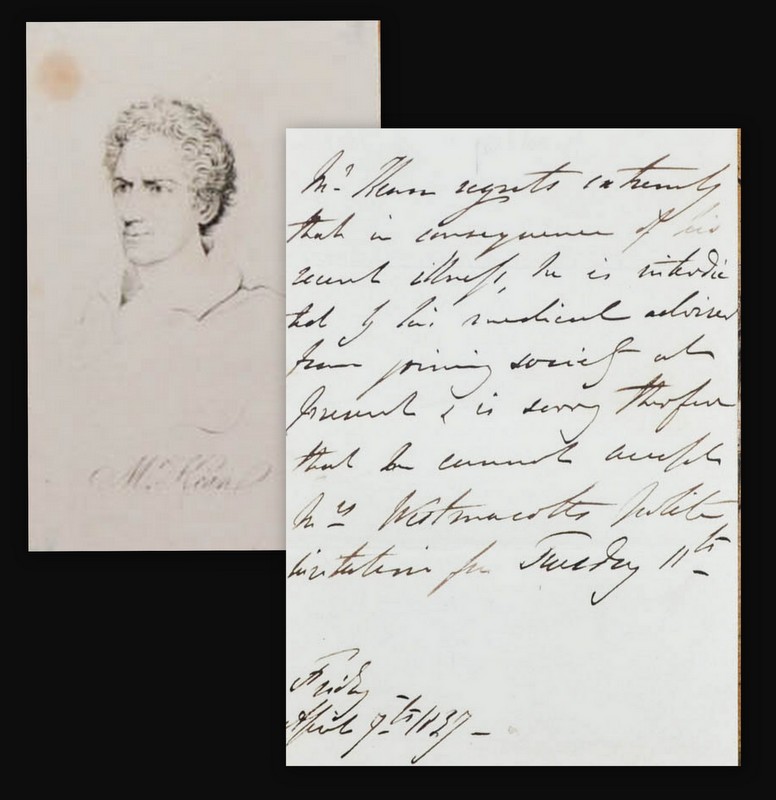 Mr Kean
Mr Kean regrets extremely
that in consequence of his
recent illness, he is interdic
ted by his medical adviser
from joining society at
present & is sorry therefore
that he cannot accept
Mrs Westmacotts polite
invitation for Tuesday 11th
Friday
April 7th 1837 –